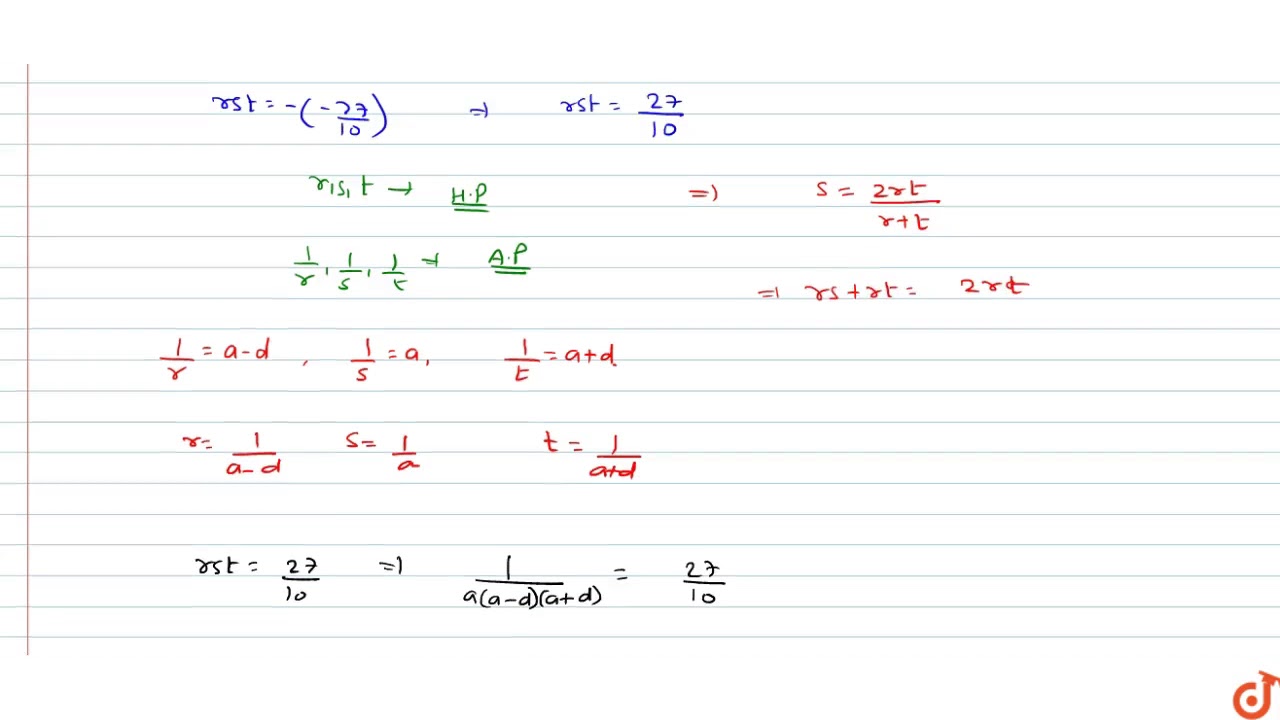 rst = -(-27/10) ⇒ rst = 27/10
r,s,t → H.P ⇒ s = 2rt/r+t
1/r, 1/s, 1/t → A.P
⇒ rs+rt = 2rt
1/r = a-d, 1/s = a, 1/t = a+d
r= 1/a-d s= 1/a t = 1/a+d
rst = 27/10 ⇒ 1/a(a-d)(a+d) = 27/10